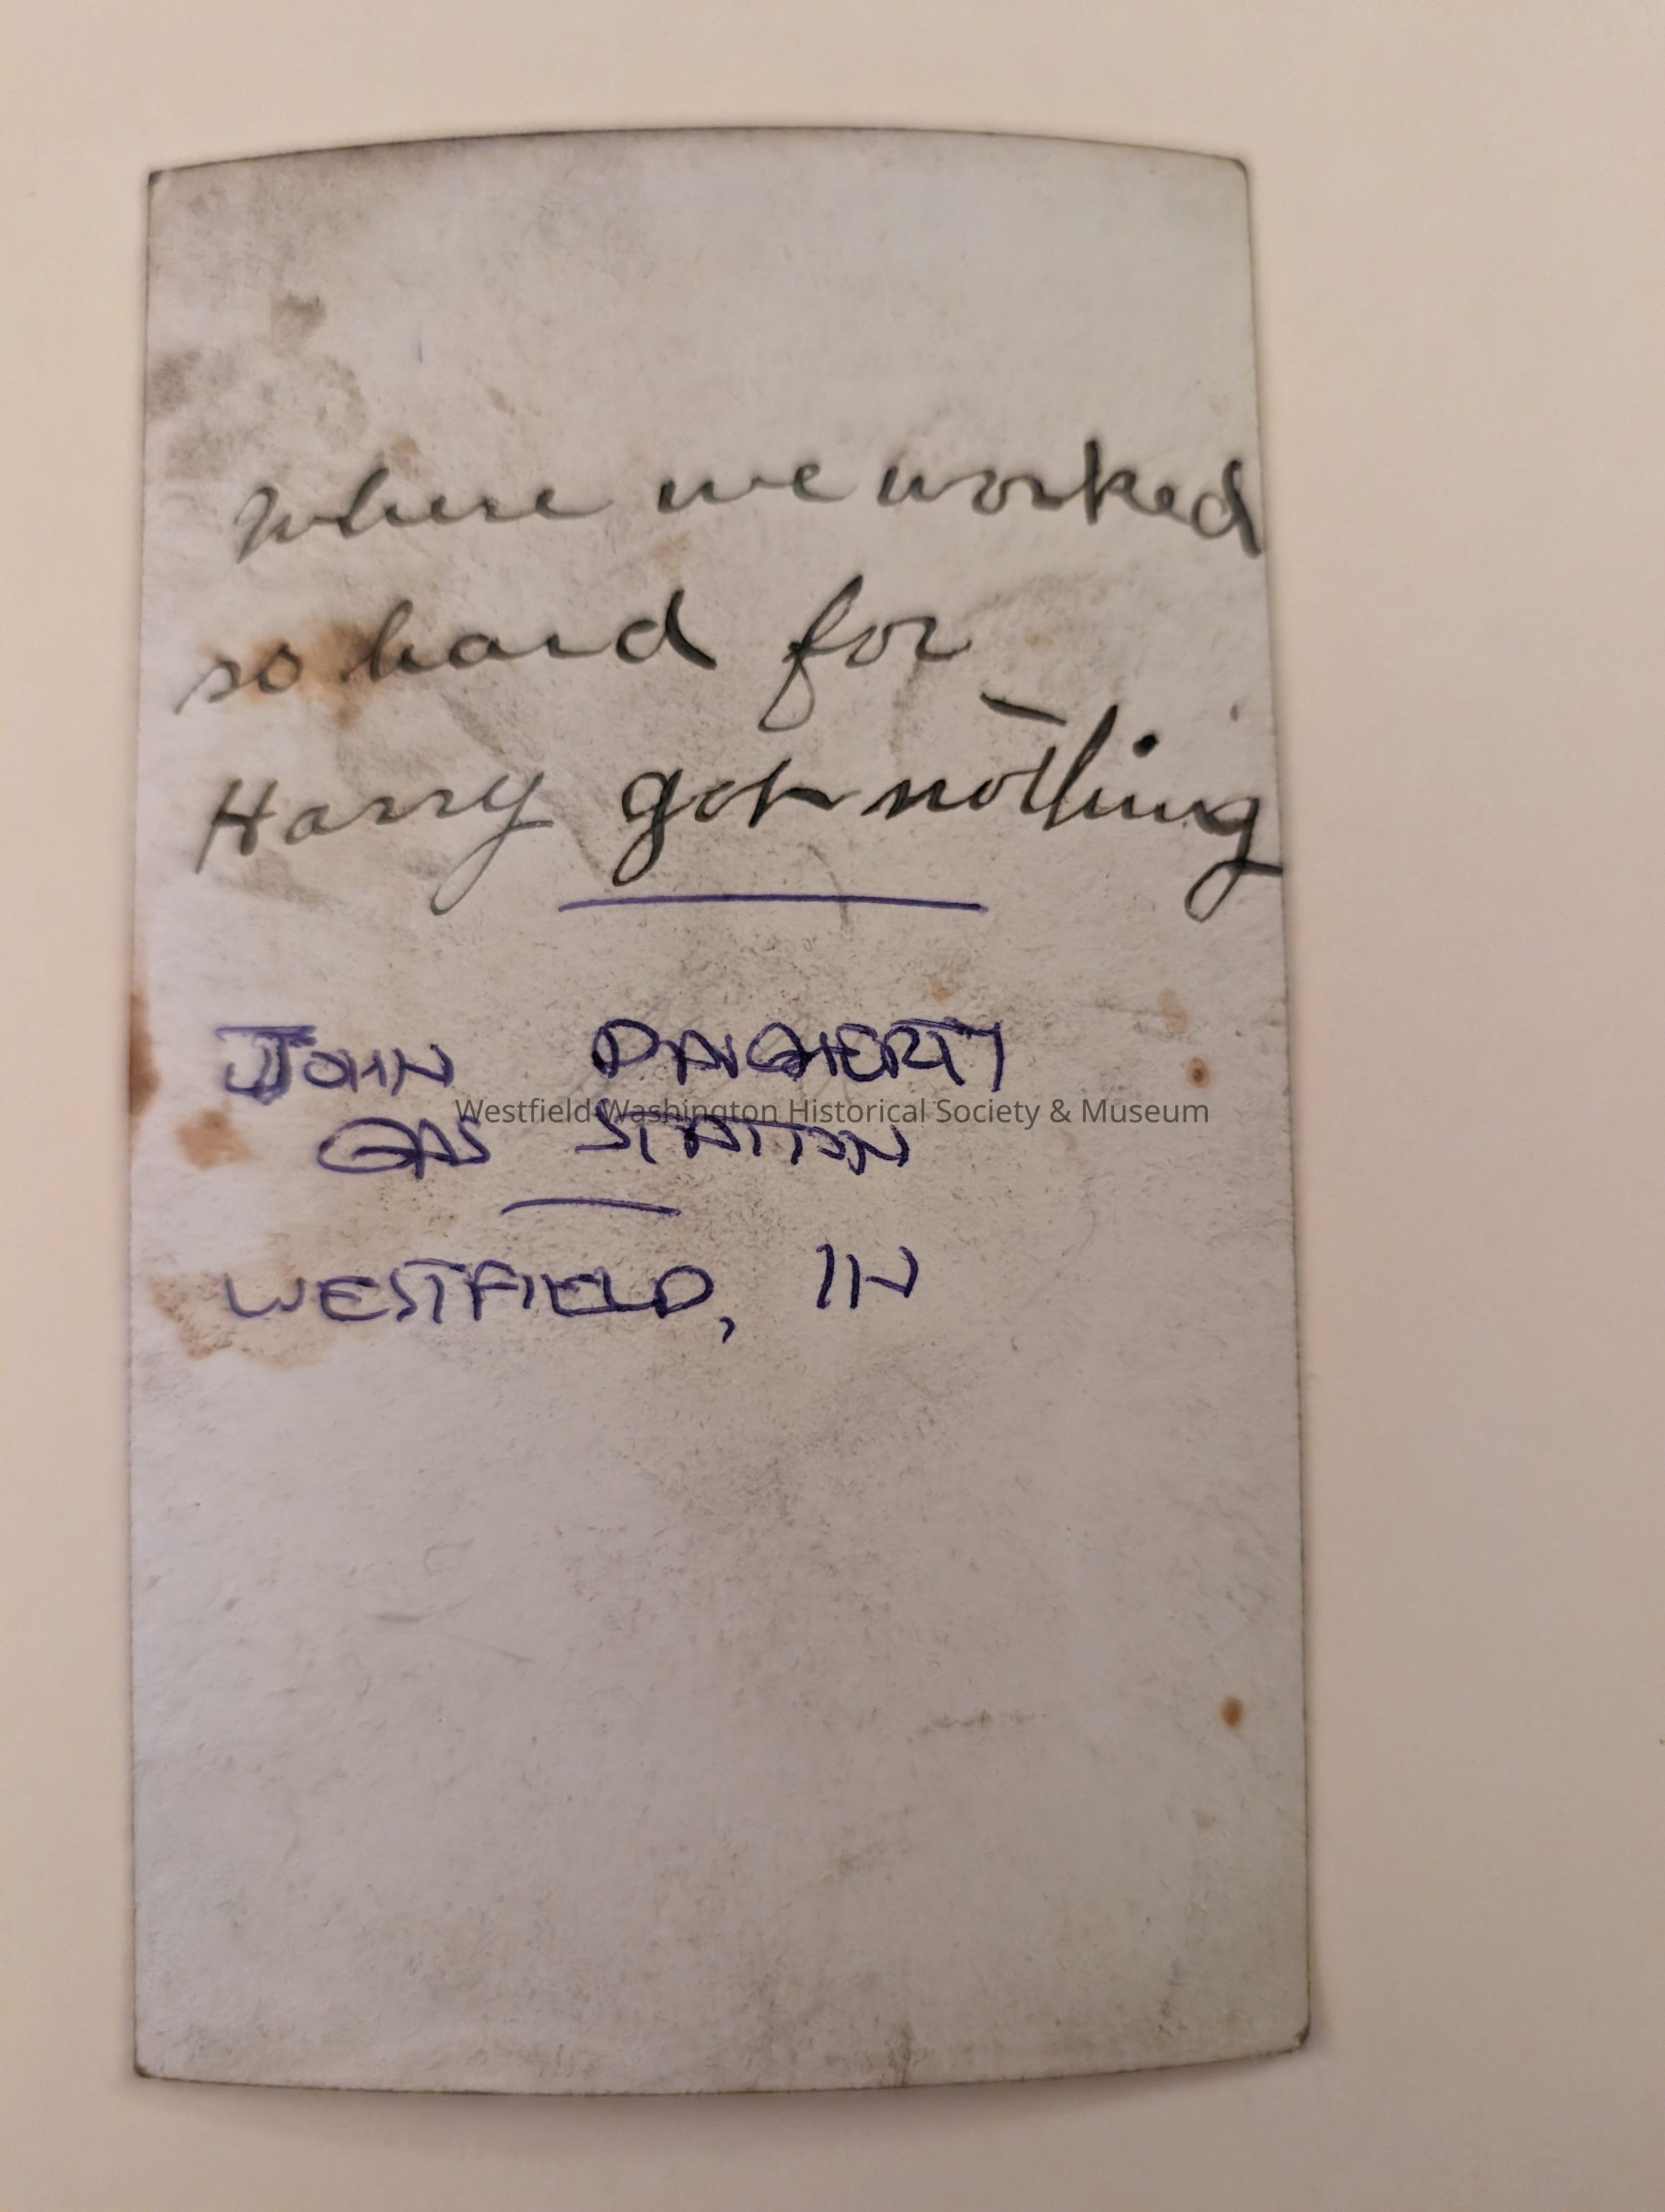 Where we worked
so hard for
Harry got nothing
JOHN DAUGHERTY
GAS STATION
WESTFIELD, IN
Westfield Washington Historical Society & Museum